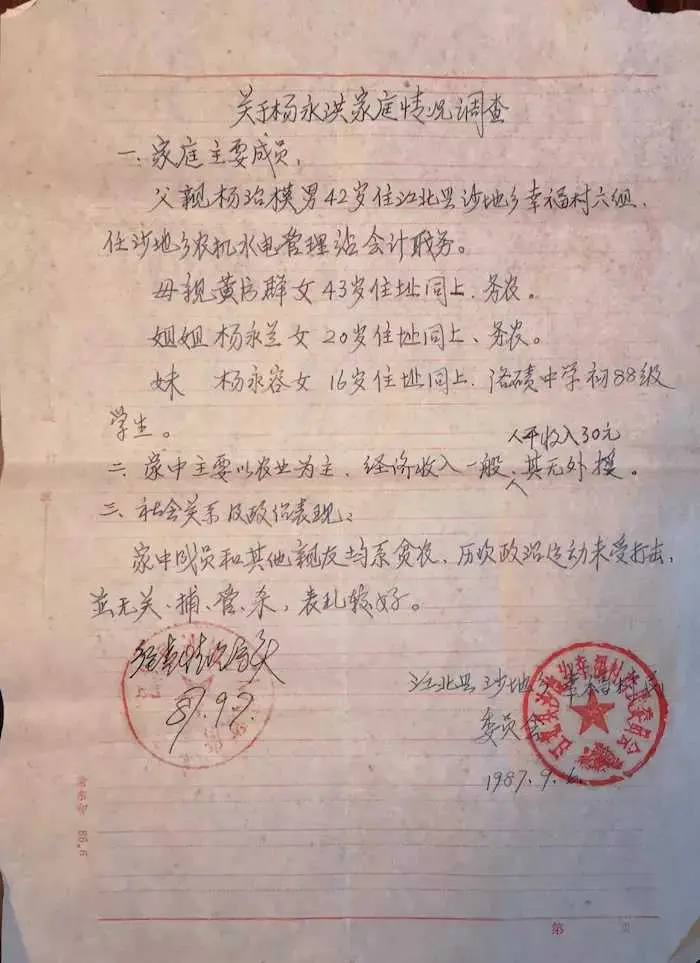 关于杨永洪家庭情况调查
一、家庭主要成员,
父亲杨治模男42岁住江北县沙地乡幸福村六组,
任沙地乡农机水电管理站会计职务。
母亲黄启群女43岁住址同上、务农。
姐姐杨永兰女20岁住址同上、务农。
妹 杨永容女16岁住址同上.洛碛中学初88级
学生。
人平收入30元
二、家中主要以农业为主、经济收入一般,其无外援。
三、社会关系及政治表现:
家中成员和其他亲友均系贫农、历次政治运动未受打击,
并无关、捕、管、杀,表现较好。
经查情况属实
87.9.7.
江北县沙地乡幸福村民
委员会
1987.9.6.
86.6
第 页